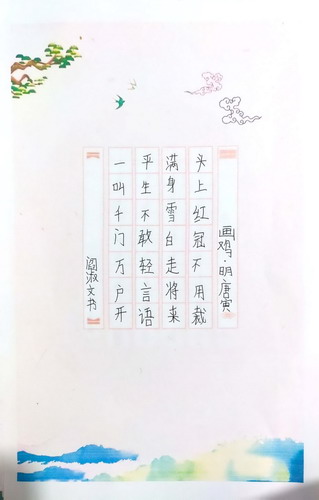 画鸡·明唐寅
头上红冠不用裁
满身雪白走将来
平生不敢轻言语
一叫千门万户开
阎淑文书